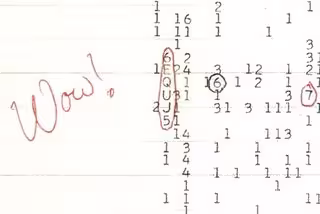 1 2 1
1 16 1 1
11 1 1 1
1 3
6 2 3
E 24 3 12 1 21
Wow! Q 1 16 1 2 1 1
U 31 1 3 7
2J1 31 3 111 1
51 1
14 1 113 1
1 3 1 1 1
1 4 1 1 1 1
4 1 1 11
1 1
1 1 1 1
1 1